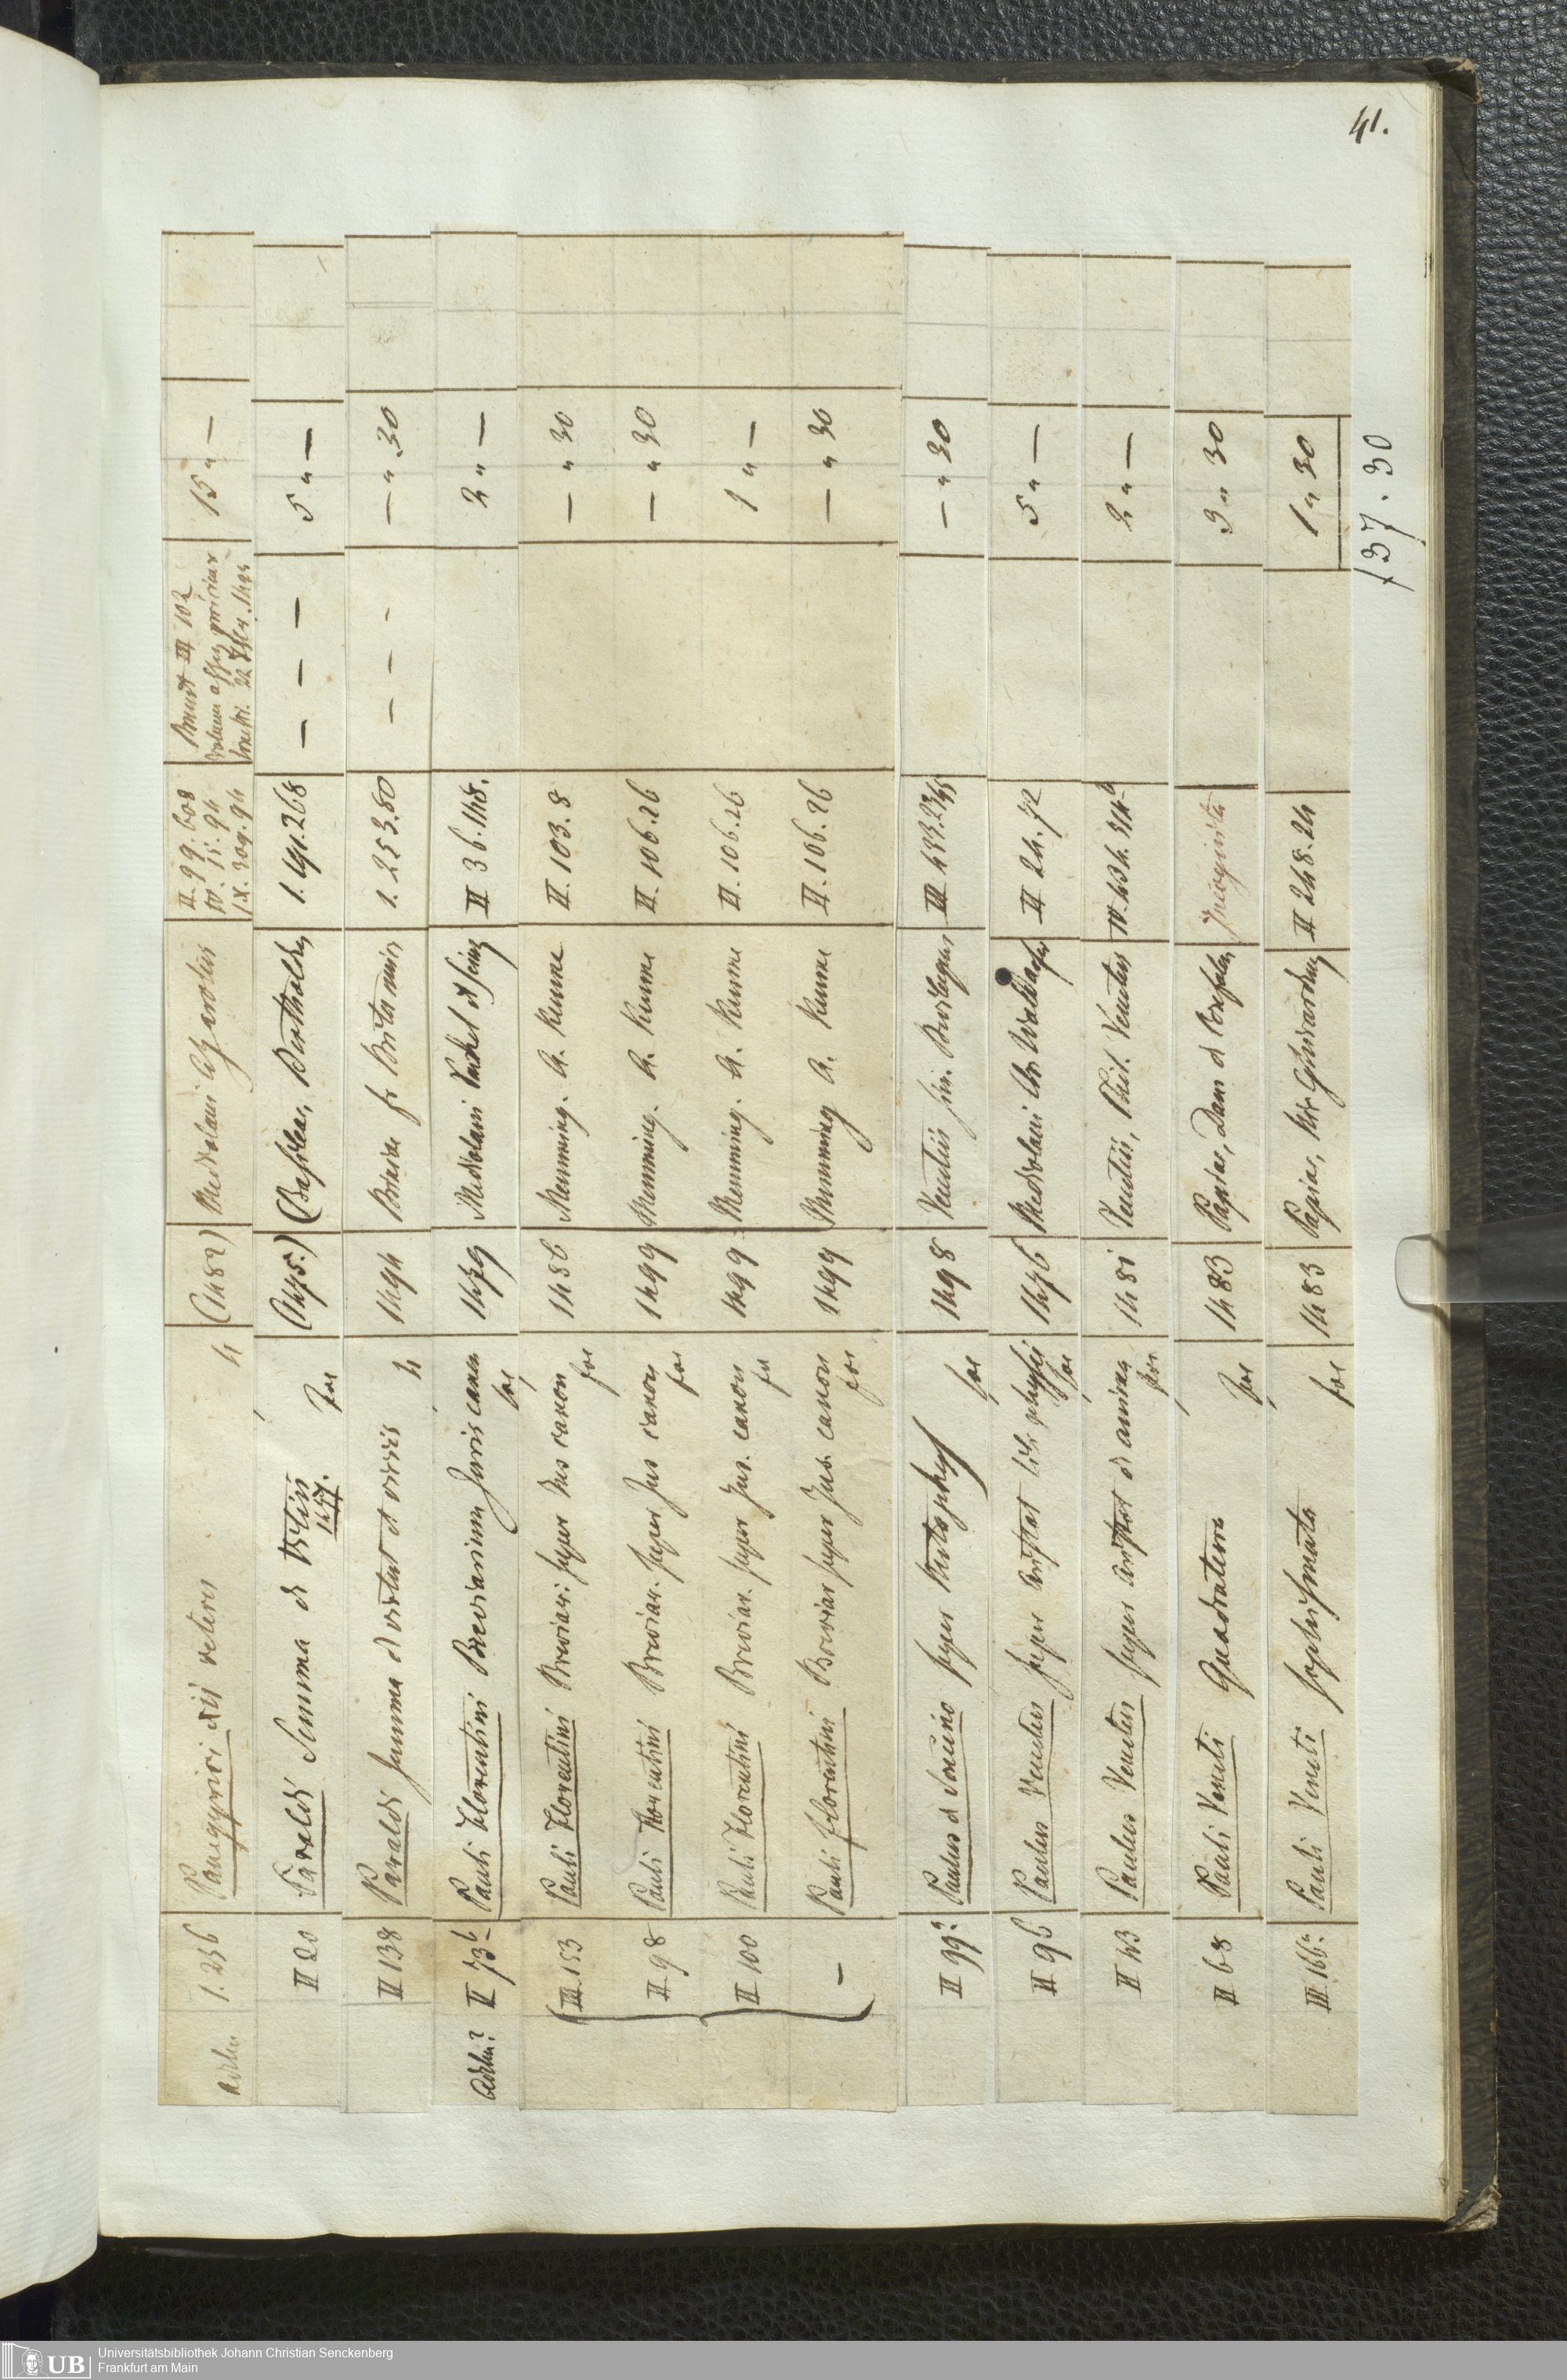 41.
Adhu 1. 236 Panegyrici XII veteres 4 (1482) Mediolani II. 99. 608
IV. 15. 94
IX. 309. 94 Brunet III 102
22 15 " —
II 20 Paraldi Summa de Vitiis fol (1475.) (Basileae, Bertholdus 1. 191. 268 — — — 5 " —
1457.
II 138 Paraldi Summa de virtut et vitiis 4 1494 Brixiae p Britannic 1. 253. 80 — — — — " 30
Adhu? II 73b Pauli Florentini Breviarium Juris canon fol 1479 Mediolani Pachel et Scinz II 36. 148. 2 " —
III 153 Pauli Florentini Breviar: super Jus canon fol 1486 Memming. A. Kunne II. 103. 8 — " 30
II 98 Pauli Florentini Breviar. super Jus canon fol 1499 Memming. A. Kunne II. 106. 26 — " 30
II 100 Pauli Florentini Breviar. super Jus. canon fol 1499 Memming. A. Kunne II. 106. 26 1 " —
— Pauli Florentini Breviar super Jus. canon fol 1499 Memming A. Kunne II. 106. 26 — " 30
II 99a Paulus d Soncino super Metaphys fol 1498 Venetiis sim. Bevilaqua III 433. 2345 — " 30
II 96 Paulus Venetus super Aristot lib. physic fol 1476 Mediolani Chr Waldarfer II 24. 72 5 " —
II 43 Paulus Venetus super Aristot de anima fol 1481 Venetiis, Phil. Venetus IV. 434. 2 " —
II 68 Pauli Veneti Quadratura fol 1483 Papiae, Dam d Confaler Incognita 3 " 30
III 166a Pauli Veneti sophismata fol 1483 Papiae, Nic Ghirardeng II 248. 24 1 " 30
137. 30
UB Universitätsbibliothek Johann Christian Senckenberg
Frankfurt am Main